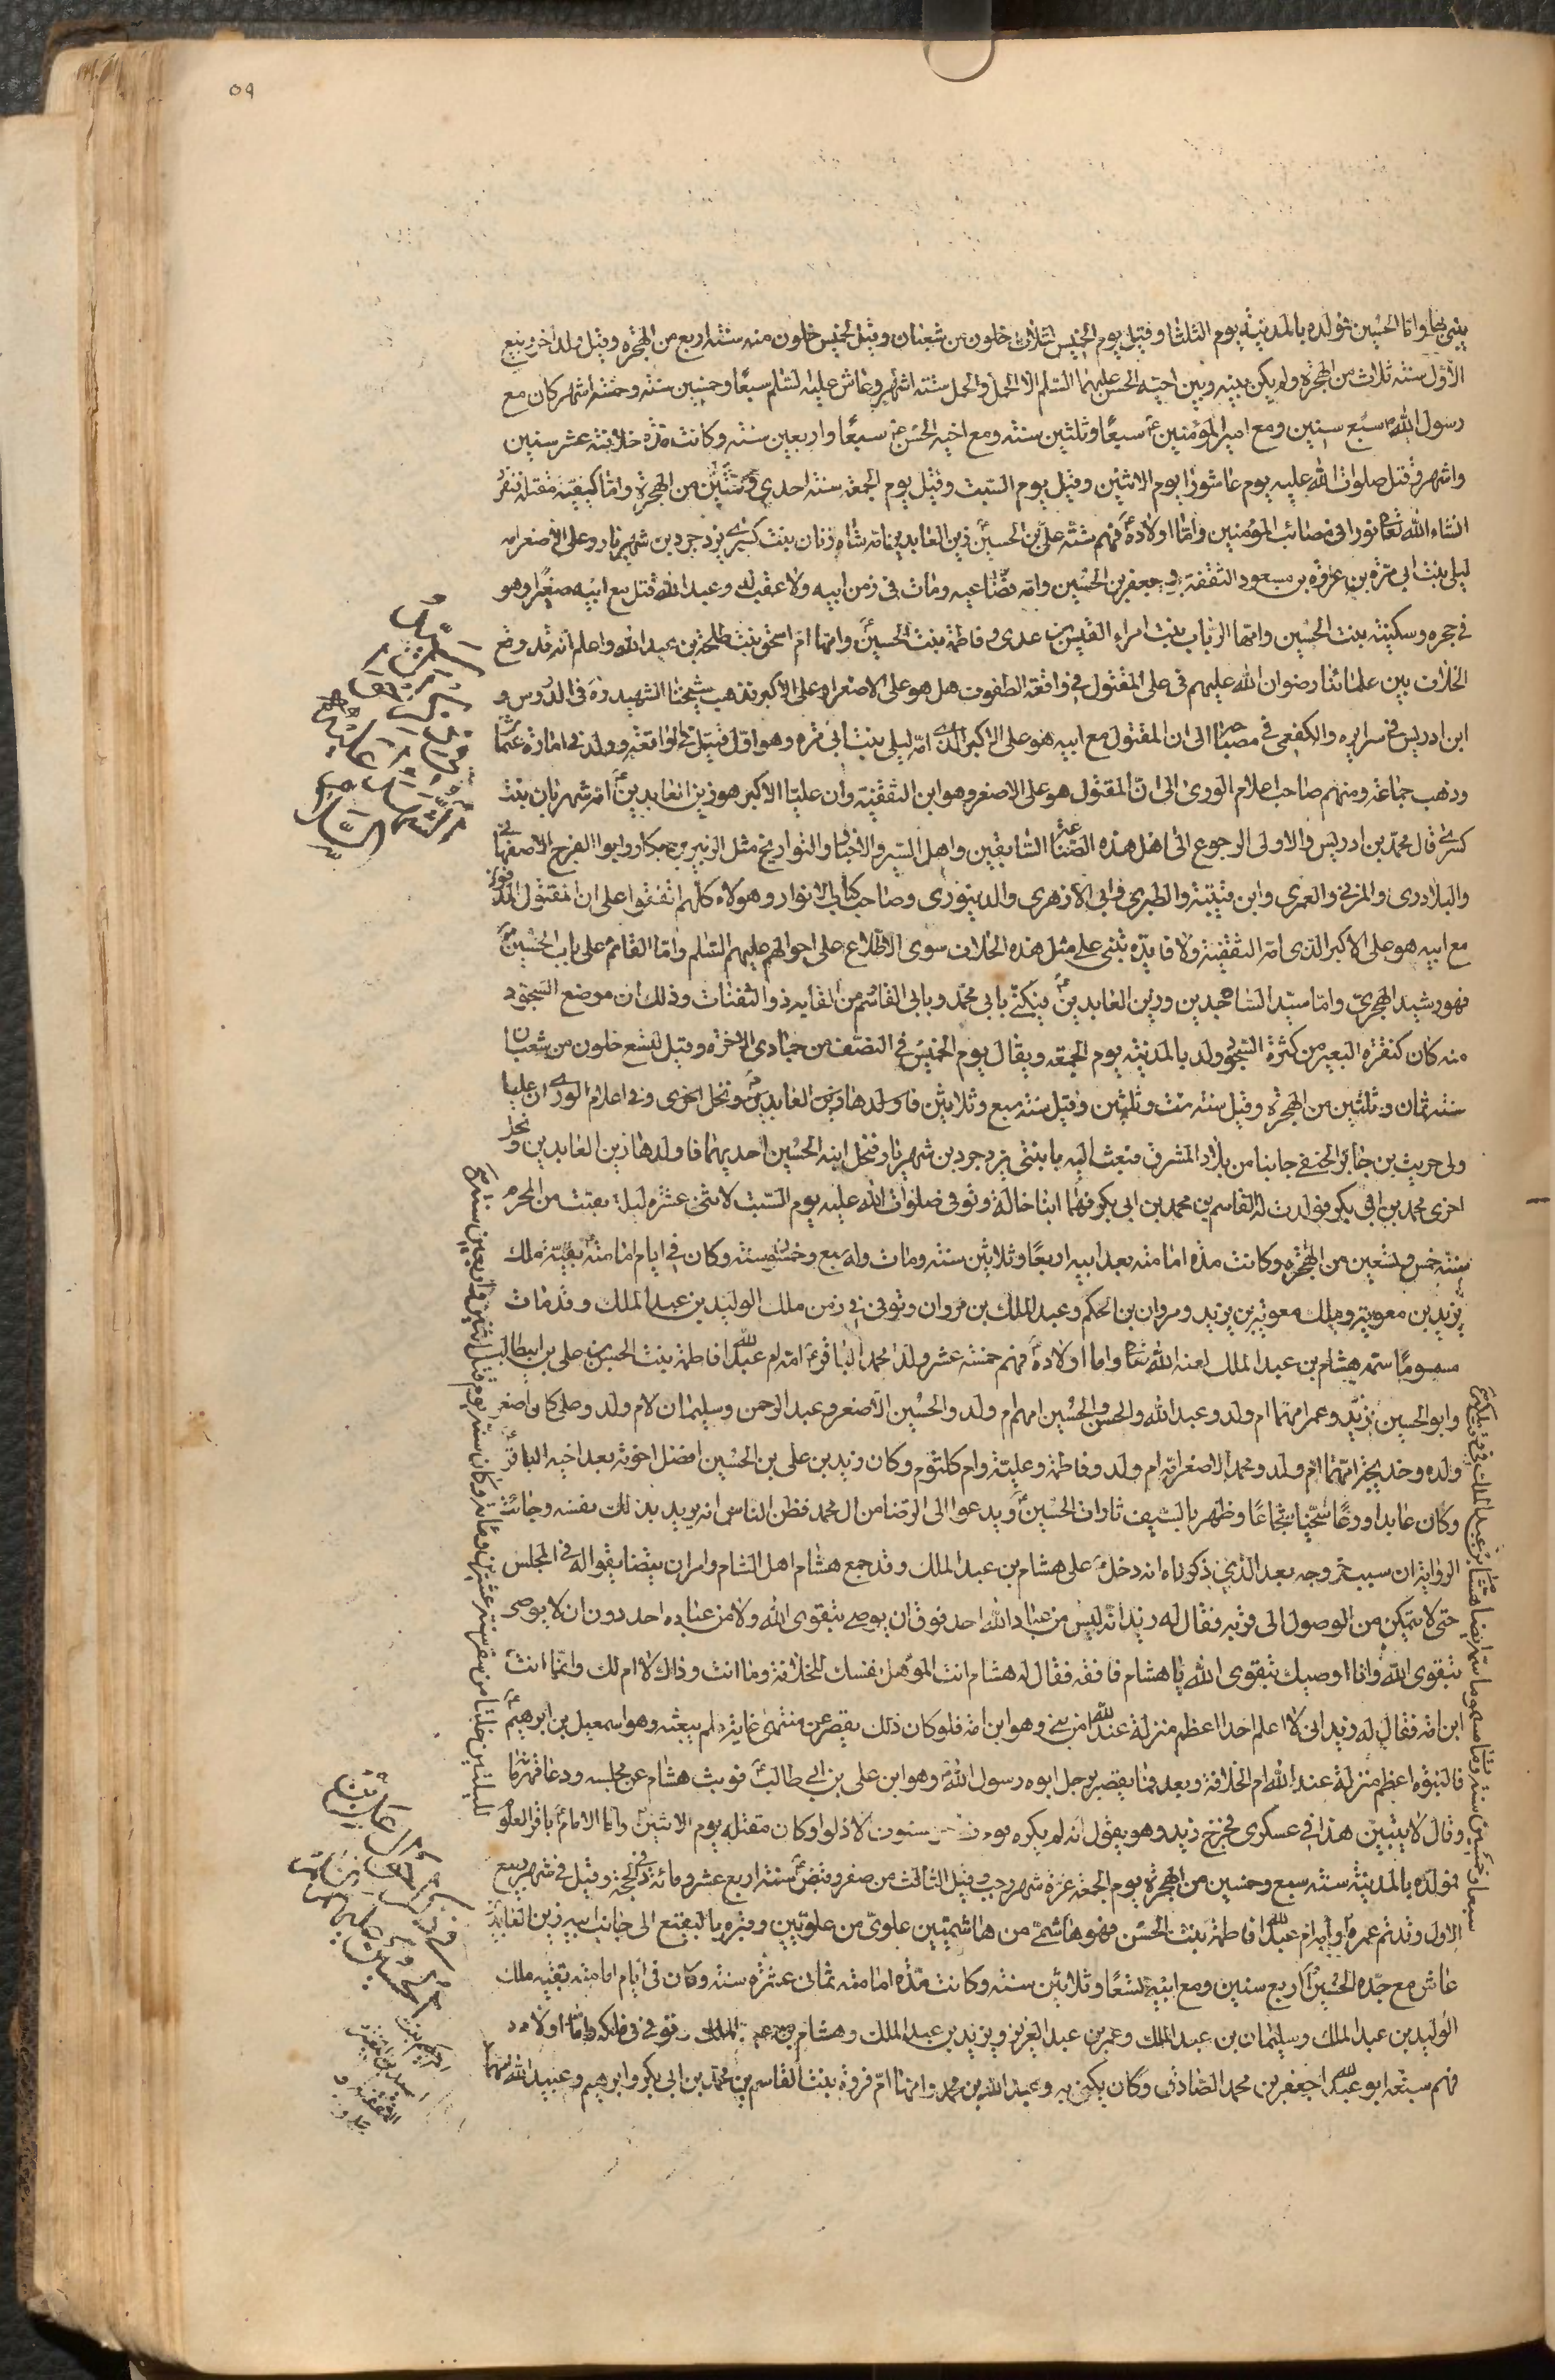 ٥٩
واما الحسين فولد بالمدينة يوم الثلثا وقيل يوم الخميس لثلاث خلون من شعبان وقيل لخمس خلون منه سنة اربع من الهجرة وقيل ولد اخر ربيع
الاول سنة ثلاث من الهجرة ولم يكن بينه وبين اخيه الحسن عليهما السلم الا الحمل والحمل ستة اشهر وعاش عليه السلم سبعا وخمسين سنة وخمسة اشهر كان مع
رسول الله ص سبع سنين ومع امير المؤمنين ع سبعا وثلثين سنة ومع اخيه الحسن ع سبعا واربعين سنة وكانت مدة خلافته عشر سنين
واشهر وقتل صلوات الله عليه يوم عاشورا يوم الاثنين وقيل يوم السبت وقيل يوم الجمعة سنة احدى وستين من الهجرة واما كيفية مقتله
انشاء الله تعا نورا في مصائب المؤمنين واما اولاده ع فهم ستة علي بن الحسين زين العابدين امه شاه زنان بنت كسرى يزدجرد بن شهريار وعلي الاصغر امه
ليلى بنت ابي مرة بن عروة بن مسعود الثقفية وجعفر بن الحسين وامه قضاعية ومات في زمن ابيه ولا عقب له وعبد الله قتل مع ابيه صغيرا وهو
في حجره وسكينة بنت الحسين وامها الرباب بنت امراء القيس بن عدى وفاطمة بنت الحسين وامها ام اسحق بنت طلحة بن عبد الله واعلم انه قد وقع
الخلاف بين علمائنا رضوان الله عليهم في علي المقتول في واقعة الطفوف هل هو علي الاصغر او علي الاكبر فذهب شيخنا الشهيد ره في الدروس و
ابن ادريس في سرايره والكفعمي في مصباحه الى ان المقتول مع ابيه هو علي الاكبر الذي امه ليلى بنت ابي مره وهو اول قتيل في الواقعة وولد في امارة عثمان
وذهب جماعة ومنهم صاحب اعلام الورى الى ان المقتول هو علي الاصغر وهو ابن الثقفية وان عليا الاكبر هو زين العابدين ع امه شهربان بنت
كسرى قال محمد بن ادريس والاولى الرجوع الى اهل هذه الصناعة السابقين واهل السير والاخبار والتواريخ مثل الزبير بن بكار وابوا الفرج الاصفهاني
والبلاذرى والمزني والعمرى وابن قتيبة والطبرى وابي الازهرى والدينورى وصاحب كتاب الانوار وهؤلاء كلهم اتفقوا على ان المقتول المدفون
مع ابيه هو علي الاكبر الذى امه الثقفية ولا فايده تبنى على مثل هذه الخلاف سوى الاطلاع على احوالهم عليهم السلم واما القائم على باب الحسين ع
فهو رشيد الهجري واما سيد الساجدين وزين العابدين ع فيكنى بابي محمد وبابي القاسم من القابه ذو الثفنات وذلك ان موضع السجود
منه كان كثفنة البعير من كثرة السجود ولد بالمدينة يوم الجمعة ويقال يوم الخميس في النصف من جمادى الاخرة وقيل لتسع خلون من شعبان
سنة ثمان وثلثين من الهجرة وقيل سنة ست وثلثين وقيل سنة سبع وثلاثين فاولدها زين العابدين ونحل اخرى وفي اعلام الورى ان عليا
ولى حريث بن جابر الحنفي جانبا من بلاد المشرق فبعث اليه بابنتى يزدجرد بن شهريار فنحل ابنه الحسين احديهما فاولدها زين العابدين ونحل
اخرى محمد بن ابي بكر فولدت له القاسم بن محمد بن ابي بكر فهما ابنا خالة وتوفي صلوات الله عليه يوم السبت لاثنى عشرة ليلة بقيت من المحرم
سنة خمس وتسعين من الهجرة وكانت مدة امامته بعد ابيه اربعا وثلاثين سنة ومات وله سبع وخمسون سنة وكان في ايام امامته بقية ملك
يزيد بن معوية وملك معوية بن يزيد ومروان بن الحكم وعبد الملك بن مروان وتوفي في زمن ملك الوليد بن عبد الملك وقد مات
مسموما سمه هشام بن عبد الملك لعنه الله تعا واما اولاده ع فهم خمسة عشر ولدا محمد الباقر ع امه ام عبد الله فاطمة بنت الحسن بن علي بن ابيطالب
وابو الحسين زيد وعمر امهما ام ولد وعبد الله والحسن والحسين امهم ام ولد والحسين الاصغر وعبد الرحمن وسليمان لام ولد وعلي كان اصغر
ولده وخديجة امهما ام ولد ومحمد الاصغر امه ام ولد وفاطمة وعلية وام كلثوم وكان زيد بن علي بن الحسين افضل اخوته بعد اخيه الباقر ع
وكان عابدا ورعا سخيا شجاعا وظهر بالسيف ثارات الحسين ع ويدعوا الى الرضا من ال محمد فظن الناس انه يريد بذلك نفسه وجائت
الرواية ان سبب خروجه بعد الذي ذكرناه انه دخل على هشام بن عبد الملك وقد جمع هشام اهل الشام وامر ان يتضايقوا له في المجلس
حتى لا يتمكن من الوصول الى قربه فقال له زيد انه ليس من عباد الله احد فوق ان يوصى بتقوى الله ولا من عباده احد دون ان لا يوصى
بتقوى الله وانا اوصيك بتقوى الله يا هشام فاتقه فقال له هشام انت المؤهل نفسك للخلافة وما انت وذاك لا ام لك وانما انت
ابن امة فقال له زيد اني لا اعلم احدا اعظم منزلة عند الله من نبي وهو ابن امة فلو كان ذلك يقصر عن منتهى غاية لم يبعثه وهو اسمعيل بن ابرهيم ع
فالنبوة اعظم منزلة عند الله ام الخلافة وبعد فما يقصر برجل ابوه رسول الله ص وهو ابن علي بن ابي طالب ع فوثب هشام عن مجلسه ودعا قهرمانه
وقال لا يبيتن هذا في عسكرى فخرج زيد وهو يقول انه لم يكره قوم قط حر السيوف الا ذلوا وكان مقتله يوم الاثنين واما الامام باقر العلوم
فولد بالمدينة سنة سبع وخمسين من الهجرة يوم الجمعة غرة شهر رجب وقيل الثالث من صفر وقبض ع سنة اربع عشر ومائة في ذي الحجة وقيل في شهر ربيع
الاول وقد تم عمره وامه ام عبد الله فاطمة بنت الحسن فهو هاشمي من هاشميتين علوي من علويين وقبره بالبقيع الى جانب ابيه زين العابدين
عاش مع جده الحسين ع اربع سنين ومع ابيه تسعا وثلاثين سنة وكانت مدة امامته ثمانى عشرة سنة وكان في ايام امامته بقية ملك
الوليد بن عبد الملك وسليمان بن عبد الملك وعمر بن عبد العزيز ويزيد بن عبد الملك وهشام بن عبد الملك وتوفي في ملكه واما اولاده
فهم سبعة ابو عبد الله جعفر بن محمد الصادق وكان يكنى به وعبد الله بن محمد وامهما ام فروة بنت القاسم بن محمد بن ابي بكر وابرهيم وعبيد الله امهما